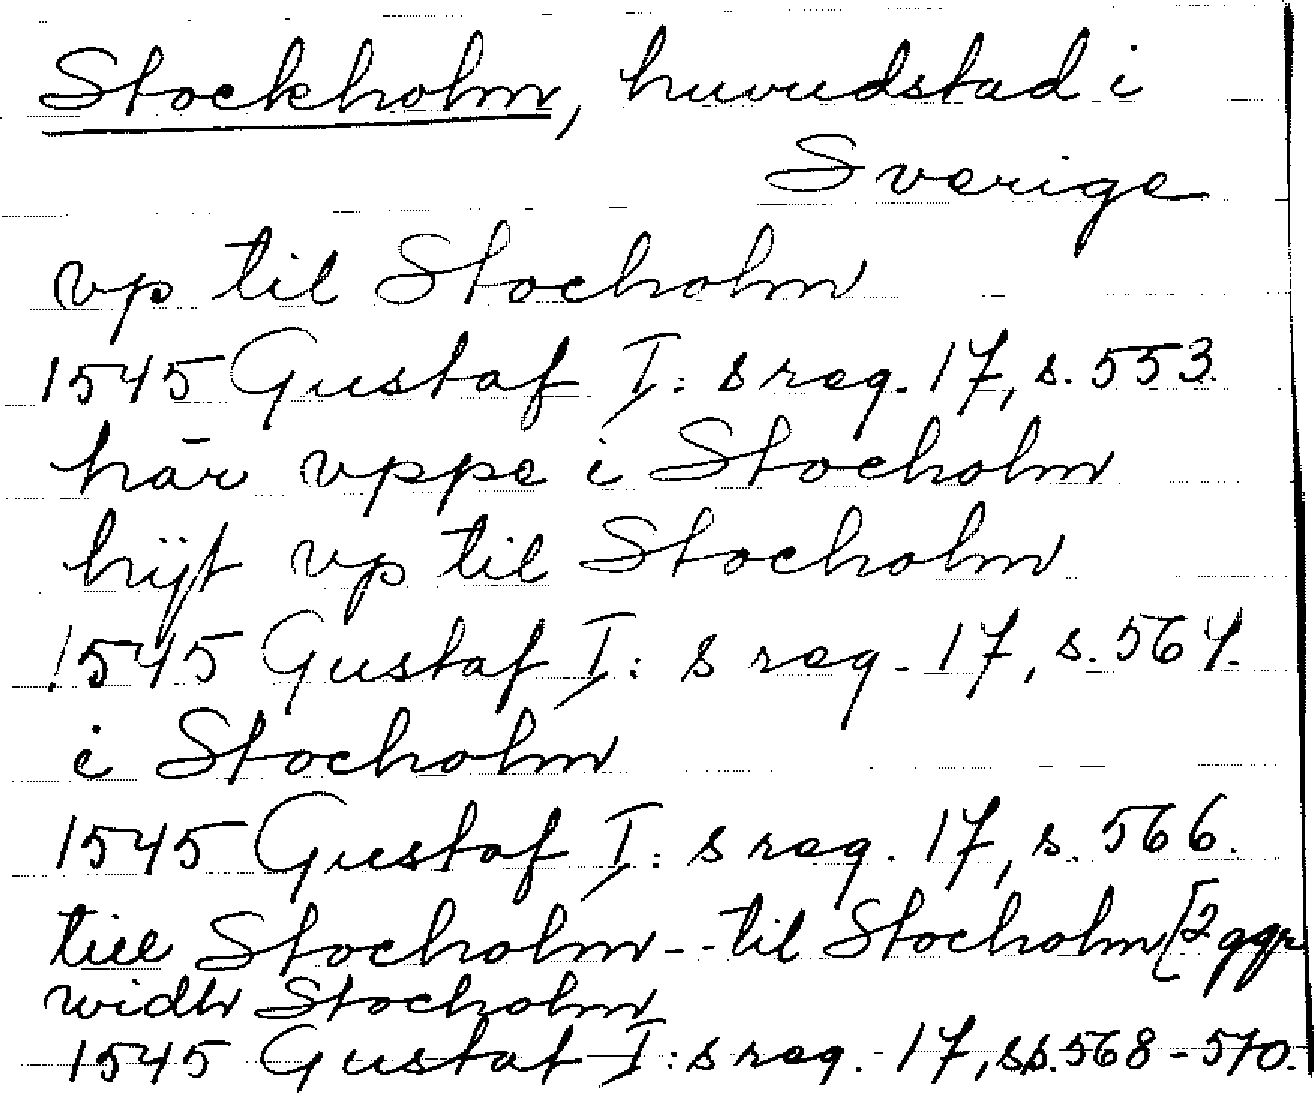 Stockholm, huvudstad i
Sverige
vp til Stocholm
1545 Gustaf I: s reg. 17, s. 553.
här vppe i Stocholm
hijt vp til Stocholm
1545 Gustaf I: s reg. 17, s. 564.
i Stocholm
1545 Gustaf I: s reg. 17, s. 566.
till Stocholm - - til Stocholm [2 ggr
widh Stocholm
1545 Gustaf I: s reg. 17, ss. 568-570.